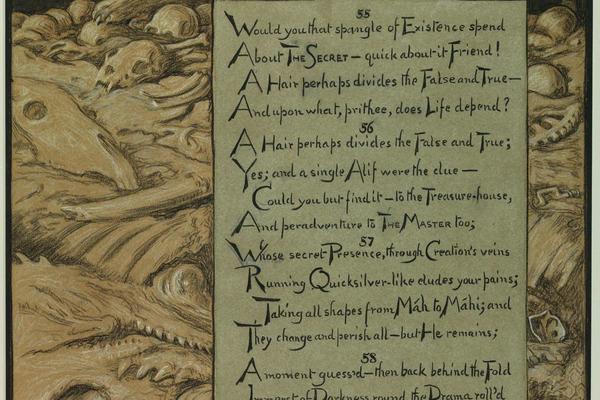 55
Would you that spangle of Existence spend
About THE SECRET — quick about it Friend!
A Hair perhaps divides the False and True —
And upon what, prithee, does Life depend?
56
A Hair perhaps divides the False and True;
Yes; and a single Alif were the clue —
Could you but find it — to the Treasure-house,
And peradventure to THE MASTER too;
57
Whose secret Presence, through Creation's veins
Running Quicksilver-like eludes your pains;
Taking all shapes from Máh to Máhi; and
They change and perish all — but He remains;
58
A moment guess'd — then back behind the Fold
Immerst of Darkness round the Drama roll'd